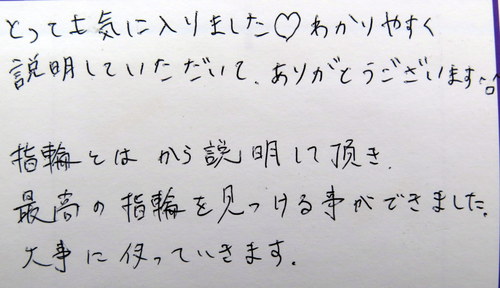 とっても気に入りました♡わかりやすく
説明していただいて、ありがとうございます
指輪とは から説明して頂き、
最高の指輪を見つける事ができました。
大事に使っていきます。